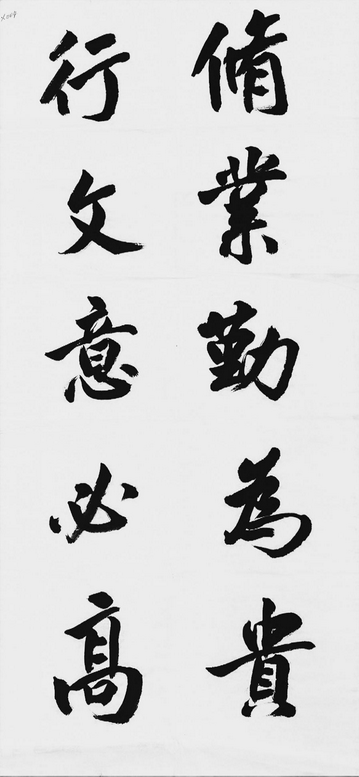 脩業勤為貴
行文意必高